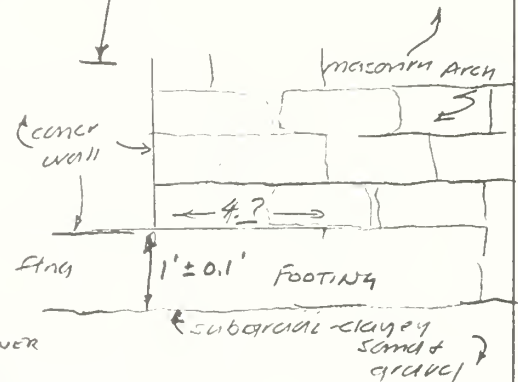 masonry Arch
concr
wall
4.?
ftng
1' ± 0.1'
FOOTING
subgrade - clayey
sand &
gravel